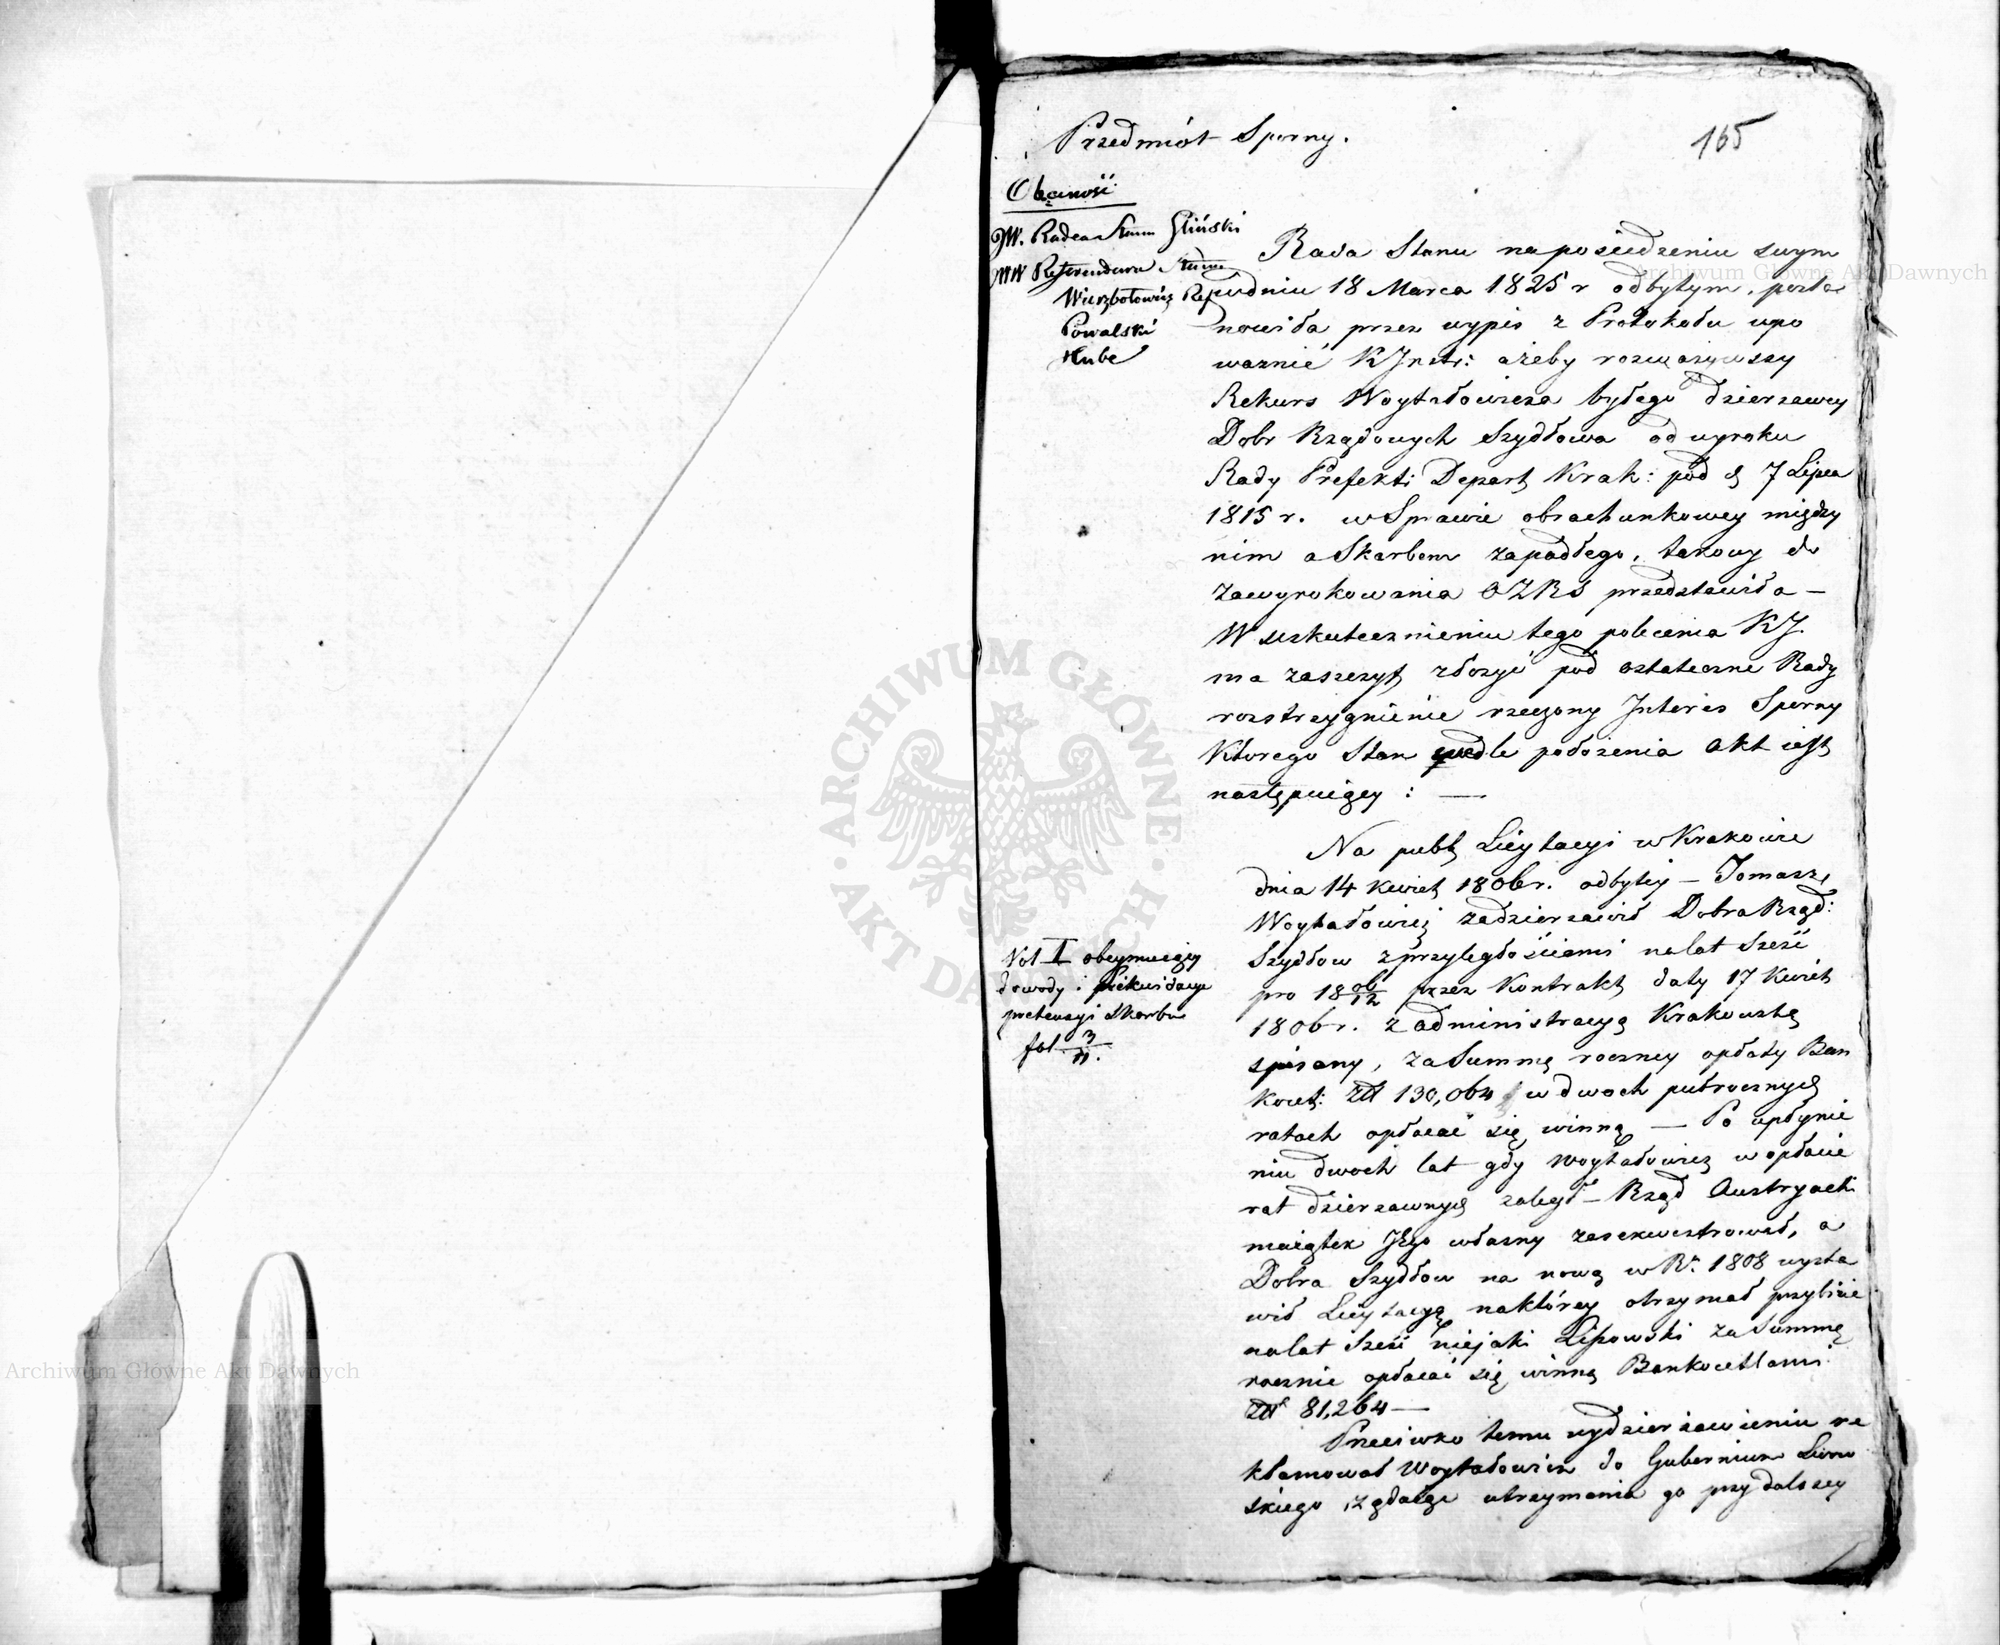 165
Przedmiót Sporny.
Obecność
JW. Radca Stanu Gliński
WW Referendarze Stanu
Wierzbołowicz Ref
Powalski
Hube
Rada Stanu na posiedzeniu swym
w dniu 18 Marca 1825 r odbytym, posta
nowiła przez wypis z Protokołu upo
ważnić K Instr: ażeby rozważywszy
Rekurs Woytałowicza byłego dzierzawcy
Dobr Rządowych Szydłowa od wyroku
Rady Prefekt: Depart Krak: pod d 7 Lipca
1815 r. w Sprawie obrachunkowey między
nim a Skarbem zapadłego, takowy do
zawyrokowania OZRS przedstawiła —
W uskutecznieniu tego polecenia KJ.
ma zaszczyt złożyć pod ostateczne Rady
rozstrzygnienie rzeczony Interes Sporny
Ktorego Stan wedle położenia Akt jest
następuiący : —
Na publ Licytacyi w Krakowie
dnia 14 Kwiet 1806 r. odbytey — Tomasz
Woytałowicz zadzierzawił Dobra Rząd:
Szydłow z przyległościami na lat Sześć
pro 18 06/12 przez Kontrakt daty 17 Kwiet
1806 r. z administracyą Krakowską
spisany, za Summę roczney opłaty Ban
kocet: Zł 130,064 w dwoch putrocznych
ratach opłacać się winną — Po upłynie
niu dwoch lat gdy Woytałowicz w opłacie
rat dzierzawnych zaległ — Rząd Austryack
maiątek Jego własny zasekwestrował, a
Dobra Szydłow na nową w Rr. 1808 wysta
wił Licytacyą na którey otrzymał przybicie
na lat Sześć niejaki Lipowski za Summę
rocznie opłacać się winną Bankocetlami
Zł 81,264 —
Przeciwko temu wydzierżawieniu re
kłamował Woytałowicz do Gubernium Lwow
skiego, żądaiąc utrzymania go przy dalszey
Vol I obeymuiący
dowody i likwidacye
pretensyi Skarbu
fol 3/11.
Archiwum Główne Akt Dawnych
ARCHIWUM GŁÓWNE
AKT DAWNYCH
Archiwum Główne Akt Dawnych